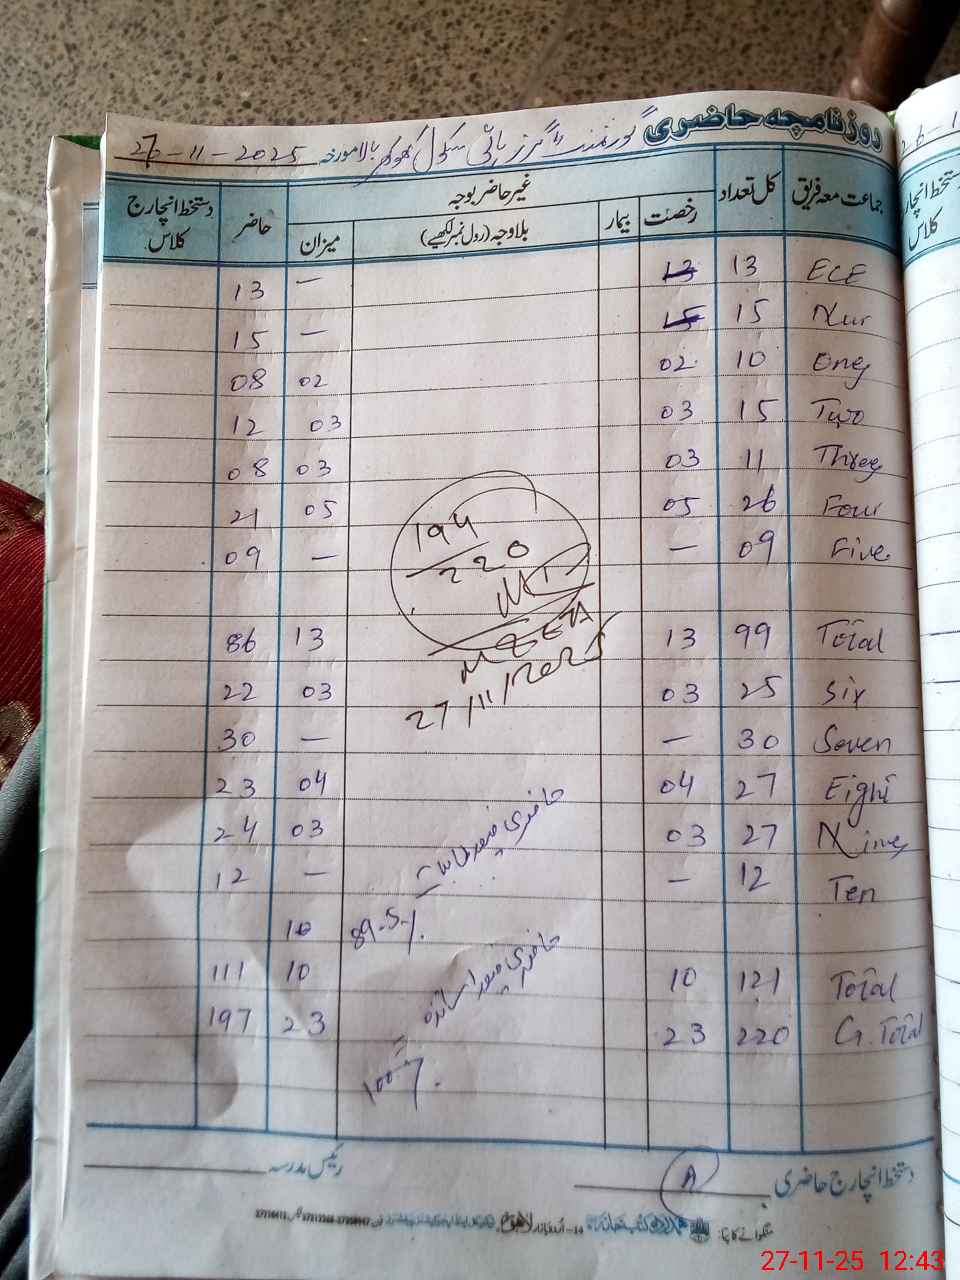 روزنامچہ حاضری گورنمنٹ گرلز ہائی سکول کھوکھر بالا مورخہ 27-11-2025
جماعت معہ فریق کل تعداد غیر حاضر بوجہ حاضر دستخط انچارج کلاس
رخصت بیمار بلاوجہ (رول نمبر لکھیے) میزان
ECE 13 13 — 13
Nur 15 15 — 15
One 10 02 02 08
Two 15 03 03 12
Three 11 03 03 08
Four 26 05 05 21
Five 09 — — 09
194
220
MEEA
27/11/2025
Total 99 13 13 86
Six 25 03 03 22
Seven 30 — — 30
Eight 27 04 04 23
Nine 27 03 03 24
Ten 12 — — 12
حاضری
89.5%
10
Total 121 10 10 111
G. Total 220 23 23 197
حاضری اساتذہ =
100%
دستخط انچارج حاضری رئیس مدرسہ
لاہور
27-11-25 12:43
26-1
دستخط انچارج
کلاس